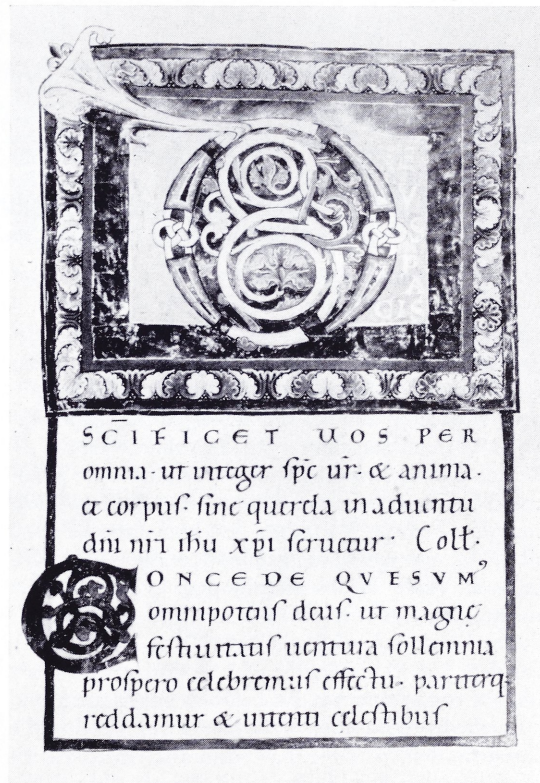 SC̄IFICET UOS PER
omnia· ut integer sp̄c ur̄· & anima·
et corpus· sine querela in aduentu
dnī nrī ihū xp̄i seruetur· Coƚƚ·
CONCEDE QVESVMꝰ
omnipotens deus· ut magnę
festiuitatis uentura sollemnia
prospero celebremus effectu· pariterq·
reddamur & intenti celestibus